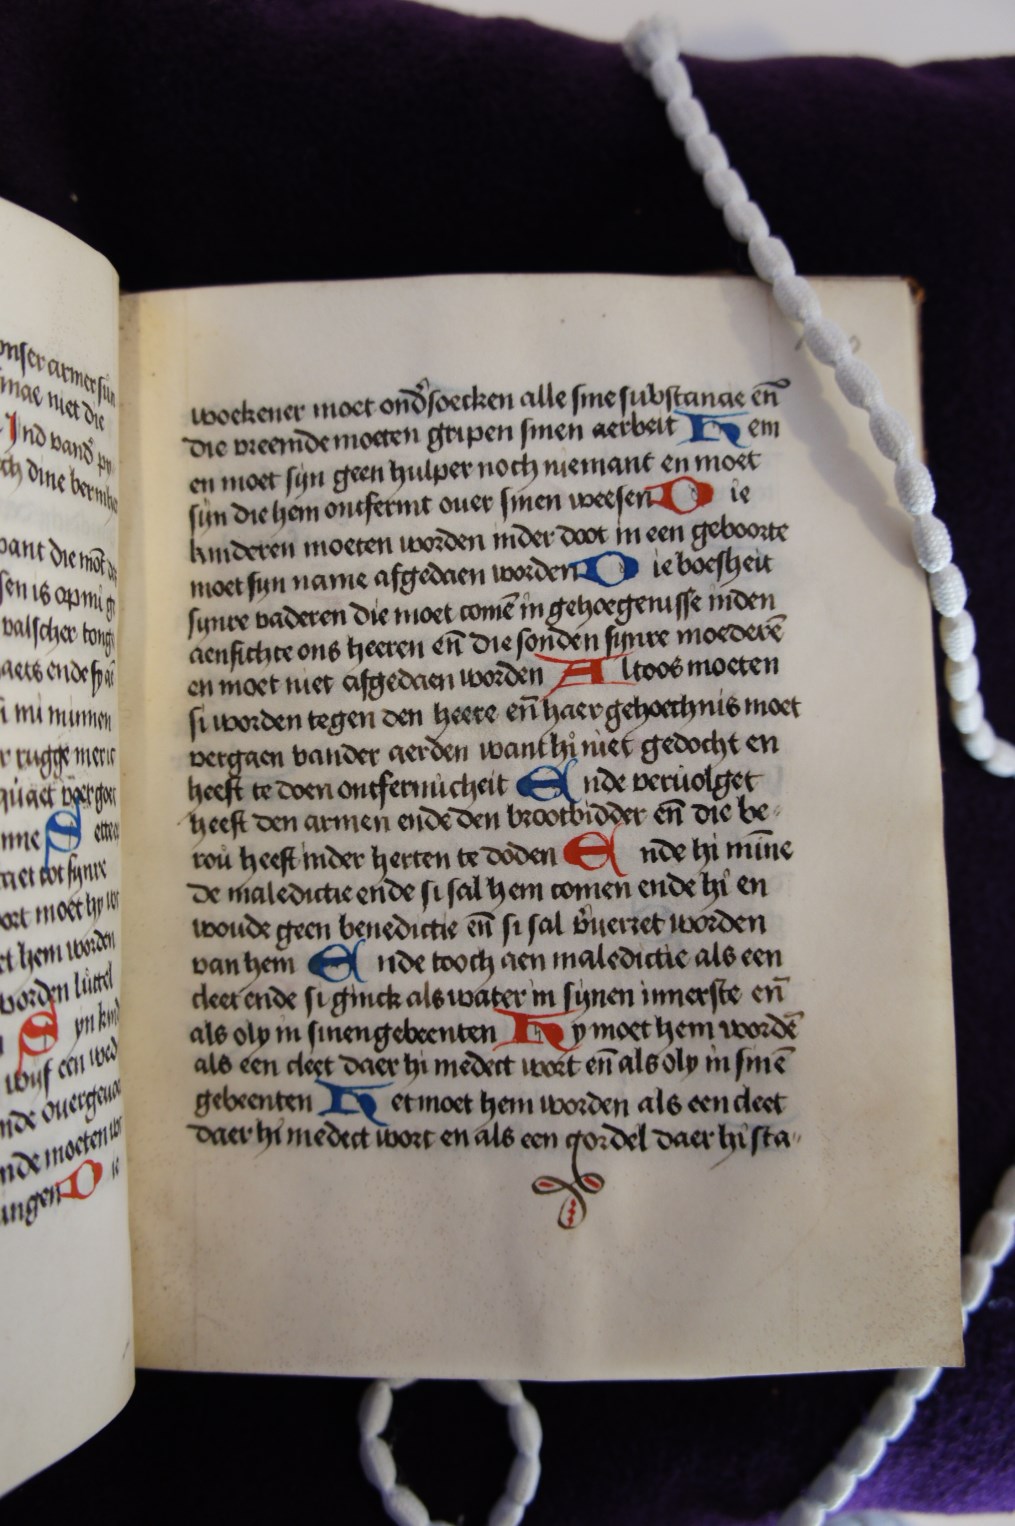 onser armer sun
mae niet die
Ind vand' py
ch dine bermhe
pant die mōt
sen is opmi ge
valscher tonge
aets ende sy
i mi minnen
r rugge meric
quaet voer goet
nne Sette
riet tot synre
ort moet hy
et hem worden
orden luttel
Syn kind
wijf een wed
nde ouergeuoe
nde moeten
ingen Die
woekener moet ond'soecken alle sine substancie en̄
die vreemde moeten gripen sinen aerbeit Hem
en moet syn geen hulper noch niemant en moet
sijn die hem ontfermt ouer sinen weesen Die
kinderen moeten worden inder doot in een geboorte
moet syn name afgedaen worden Die bosheit
synre vaderen die moet comē in gehoegenisse inden
aensichte ons heeren en̄ die sonden synre moederē
en moet niet afgedaen worden Altoos moeten
si worden tegen den heere en̄ haer gehoechnis moet
vergaen vander aerden want hi niet gedocht en
heeft te doen ontfermicheit Ende veruolget
heeft den armen ende den brootbidder en̄ die be-
rou heeft inder herten te doden Ende hi mīne
de maledictie ende si sal hem comen ende hi en
woude geen benedictie en̄ si sal v'uerret worden
van hem Ende tooch aen maledictie als een
cleet ende si ginck als water in synen innerste en̄
als oly in sinen gebeenten Hy moet hem wordē
als een cleet daer hi medect wort en̄ als oly in sinē
gebeenten Het moet hem worden als een cleet
daer hi medect wort en als een gordel daer hi sta-